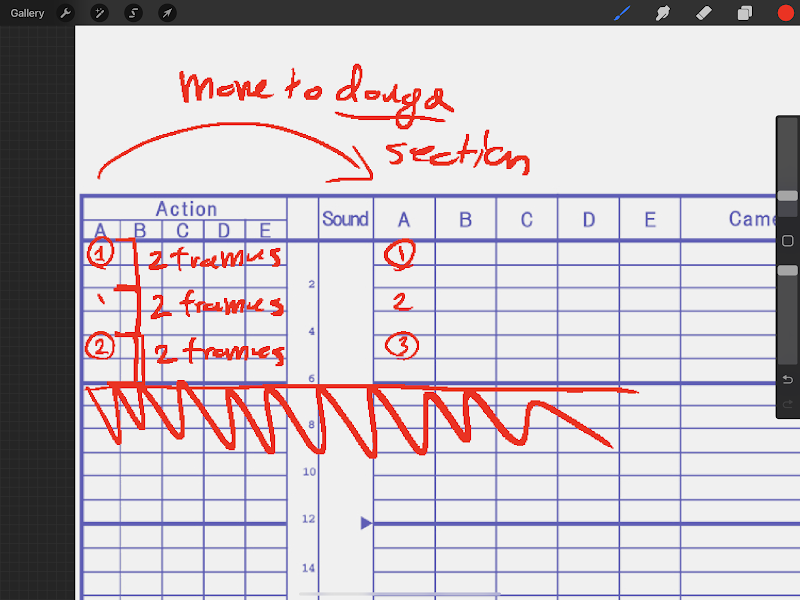 Gallery
move to douga
section
Action
Sound A B C D E Came
A B C D E
① 2 frames ①
2
2 frames 2
4
② 2 frames ③
6
8
10
12
14